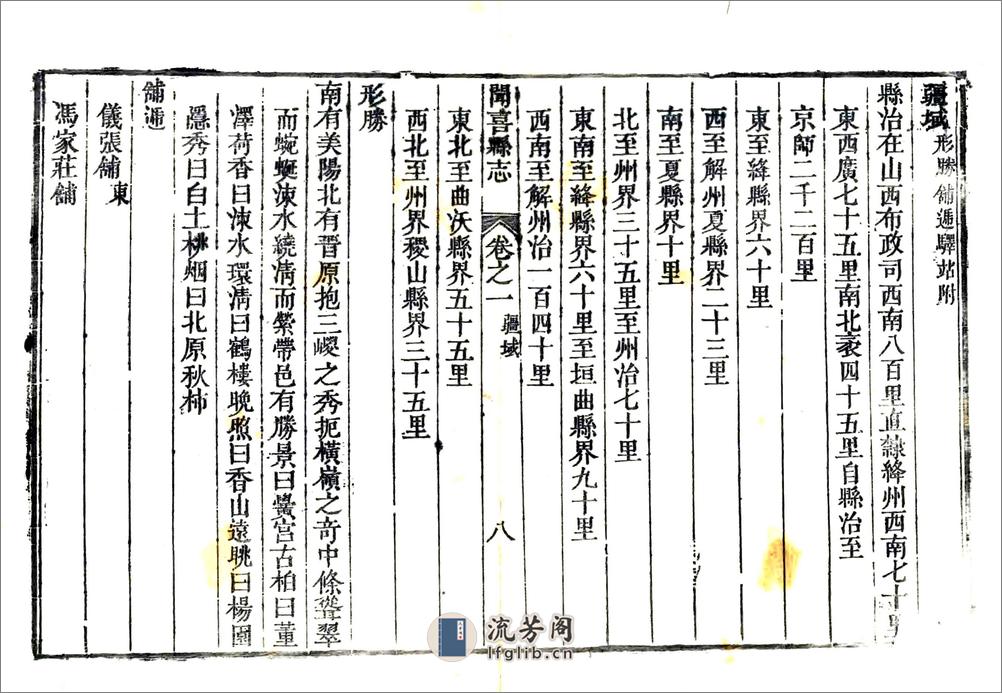 疆域形勝舖遞驛站附
縣治在山西布政司西南八百里直隸絳州西南七十里
東西廣七十五里南北袤四十五里自縣治至
京師二千二百里
東至絳縣界六十里
西至解州夏縣界二十三里
南至夏縣界十里
北至州界三十五里至州治七十里
東南至絳縣界六十里至垣曲縣界九十里
西南至解州治一百四十里
聞喜縣志 卷之一 疆域 八
東北至曲沃縣界五十五里
西北至州界稷山縣界三十五里
形勝
南有美陽北有晉原抱三嵕之秀扼橫嶺之奇中條聳翠
而蜿蜒涑水繞淸而縈帶邑有勝景曰黌宮古柏曰董
澤荷香曰涑水環淸曰鶴樓晚照曰香山遠眺曰楊園
隱秀曰白土桃烟曰北原秋柿
舖遞
儀張舖東
馮家莊舖
流芳阁
lfglib.cn